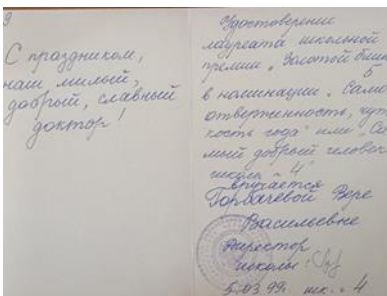 С праздником,
наш милый,
добрый, славный
доктор!
Удостоверение
лауреата школьной
премии „Золотой
в номинации „Само
отверженность, чут
кость года" или „Са
мый добрый человек
школы - 4"
вручается
Горбачевой Вере
Васильевне
Директор
школы:
5.03.99г. шк. - 4